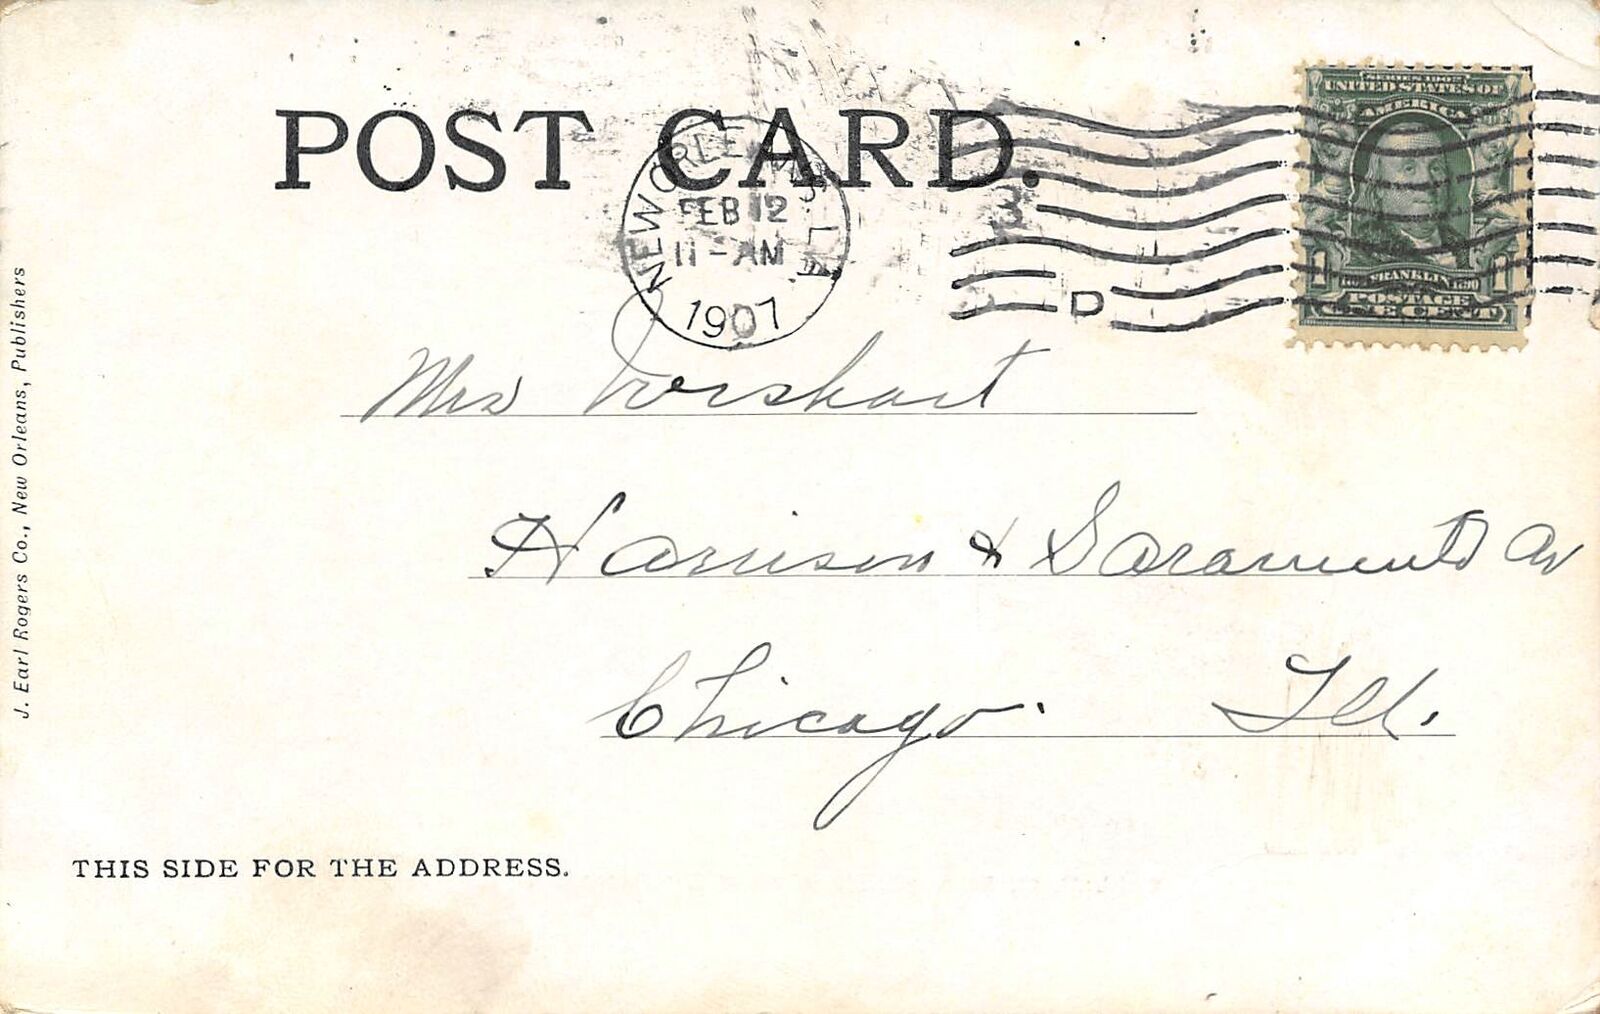 POST CARD.
NEW ORLEANS, LA.
FEB 12
11-AM
1907
D
SERIES 1902
UNITED STATES OF
AMERICA
1 FRANKLIN 1
1706 1790
POSTAGE
ONE CENT
Mrs
Harrison & Sacramento Av
Chicago. Ill.
THIS SIDE FOR THE ADDRESS.
J. Earl Rogers Co., New Orleans, Publishers